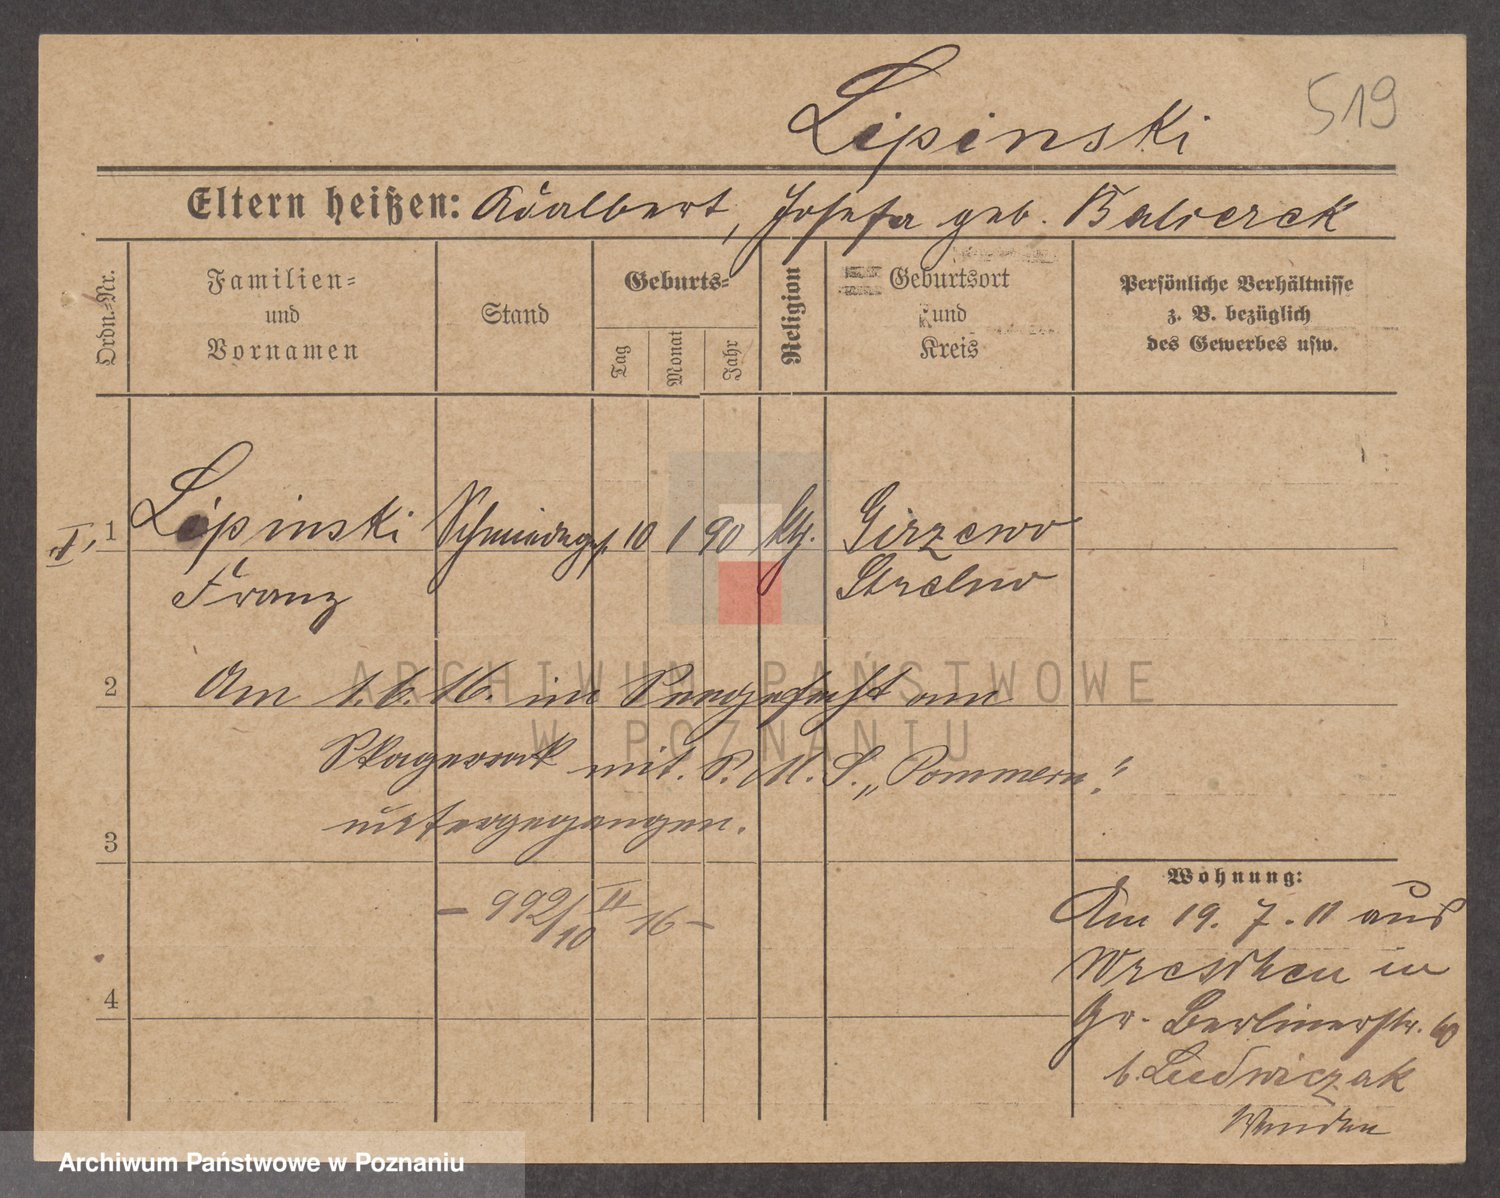 519
Lipinski
Eltern heißen: Adalbert, Josefa geb. Balcerek
Ordn.-Nr.
Familien-
und
Vornamen
Stand
Geburts-
Tag
Monat
Jahr
Religion
Geburtsort
und
Kreis
Persönliche Verhältnisse
z. B. bezüglich
des Gewerbes usw.
1 Lipinski Schmiedeges. 10 1 90 kth. Girzewo
Franz Strelno
2 Am 1.6.16. im Seegefecht am
Skagerrak mit S. M. S. „Pommern“
3 untergegangen.
- 992/10 II 16 -
4
Wohnung:
Am 19. 7. 11 aus
Wreschen in
Gr. Berlinerstr. 60
b. Ludwiczak
ARCHIWUM PAŃSTWOWE
W POZNANIU
Archiwum Państwowe w Poznaniu